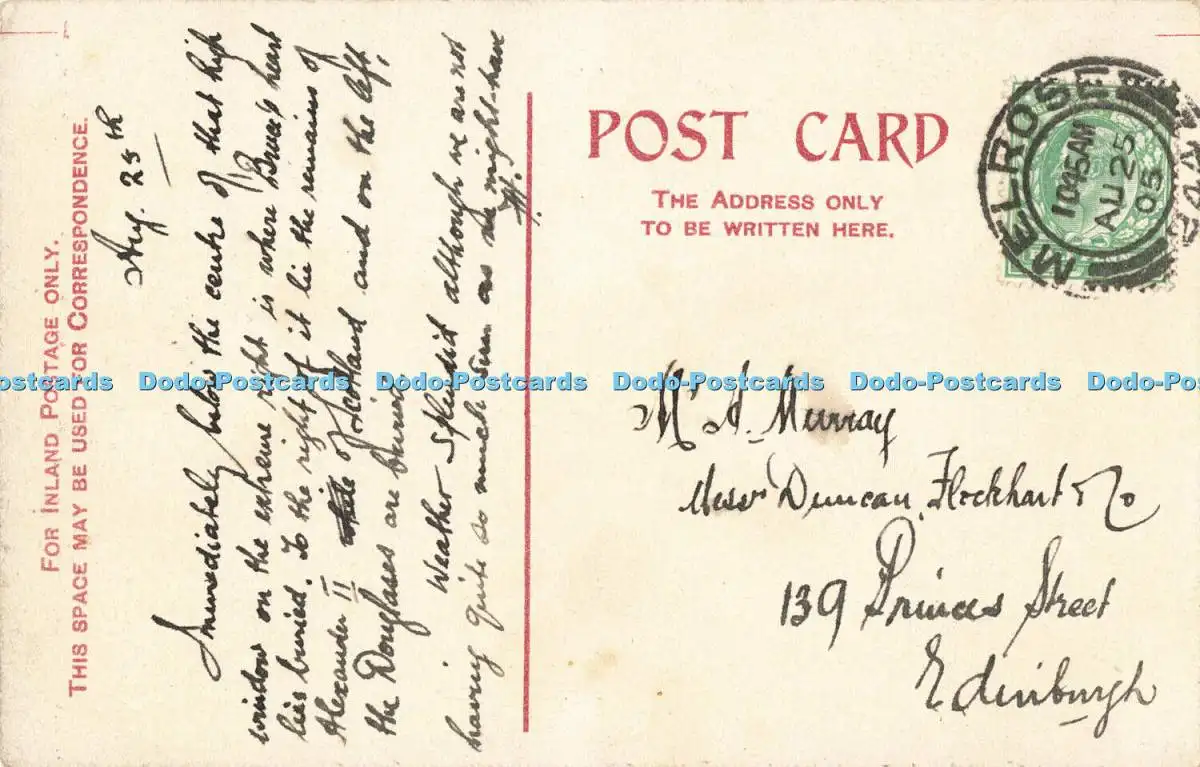 FOR INLAND POSTAGE ONLY.
THIS SPACE MAY BE USED FOR CORRESPONDENCE.
Aug. 25th
Immediately below the centre of that high
window on the extreme right is where Bruce's heart
lies buried. To the right of it lie the remains of
Alexander II of Scotland and on the left,
the Douglases are buried.
Weather splendid although we are not
having quite so much sun as we might have
POST CARD
THE ADDRESS ONLY
TO BE WRITTEN HERE.
MELROSE
1045AM
AU 25
05
Mr A. Murray
Messrs Duncan, Flockhart & Co
139 Princes Street
Edinburgh
Dodo-Postcards Dodo-Postcards Dodo-Postcards Dodo-Postcards